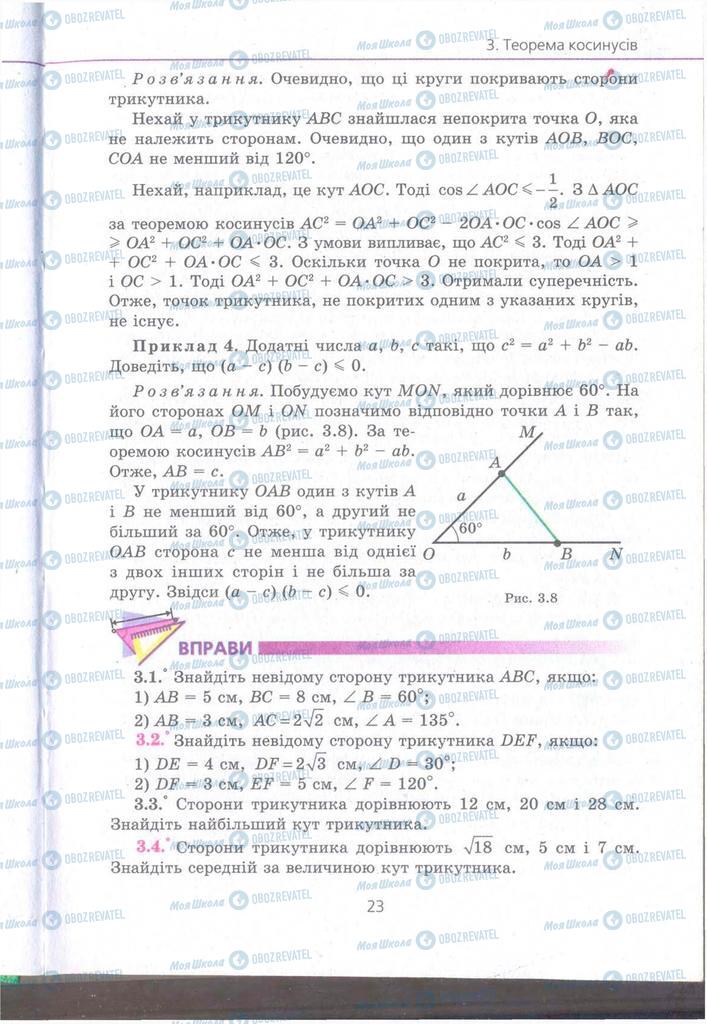 3. Теорема косинусів
Розв’язання. Очевидно, що ці круги покривають сторони
трикутника.
Нехай у трикутнику ABC знайшлася непокрита точка O, яка
не належить сторонам. Очевидно, що один з кутів AOB, BOC,
COA не менший від 120°.
Нехай, наприклад, це кут AOC. Тоді cos ∠ AOC ⩽ −1/2. З Δ AOC
за теоремою косинусів AC² = OA² + OC² − 2OA·OC·cos ∠ AOC ⩾
⩾ OA² + OC² + OA·OC. З умови випливає, що AC² ⩽ 3. Тоді OA² +
+ OC² + OA·OC ⩽ 3. Оскільки точка O не покрита, то OA > 1
і OC > 1. Тоді OA² + OC² + OA·OC > 3. Отримали суперечність.
Отже, точок трикутника, не покритих одним з указаних кругів,
не існує.
Приклад 4. Додатні числа a, b, c такі, що c² = a² + b² − ab.
Доведіть, що (a − c) (b − c) ⩽ 0.
Розв’язання. Побудуємо кут MON, який дорівнює 60°. На
його сторонах OM і ON позначимо відповідно точки A і B так,
що OA = a, OB = b (рис. 3.8). За те-
оремою косинусів AB² = a² + b² − ab.
Отже, AB = c.
У трикутнику OAB один з кутів A
і B не менший від 60°, а другий не
більший за 60°. Отже, у трикутнику
OAB сторона c не менша від однієї
з двох інших сторін і не більша за
другу. Звідси (a − c) (b − c) ⩽ 0.
M
A
a
60°
O b B N
Рис. 3.8
ВПРАВИ
3.1.° Знайдіть невідому сторону трикутника ABC, якщо:
1) AB = 5 см, BC = 8 см, ∠ B = 60°;
2) AB = 3 см, AC = 2√2 см, ∠ A = 135°.
3.2.° Знайдіть невідому сторону трикутника DEF, якщо:
1) DE = 4 см, DF = 2√3 см, ∠ D = 30°;
2) DF = 3 см, EF = 5 см, ∠ F = 120°.
3.3.° Сторони трикутника дорівнюють 12 см, 20 см і 28 см.
Знайдіть найбільший кут трикутника.
3.4.° Сторони трикутника дорівнюють √18 см, 5 см і 7 см.
Знайдіть середній за величиною кут трикутника.
23
Моя Школа OBOZREVATEL